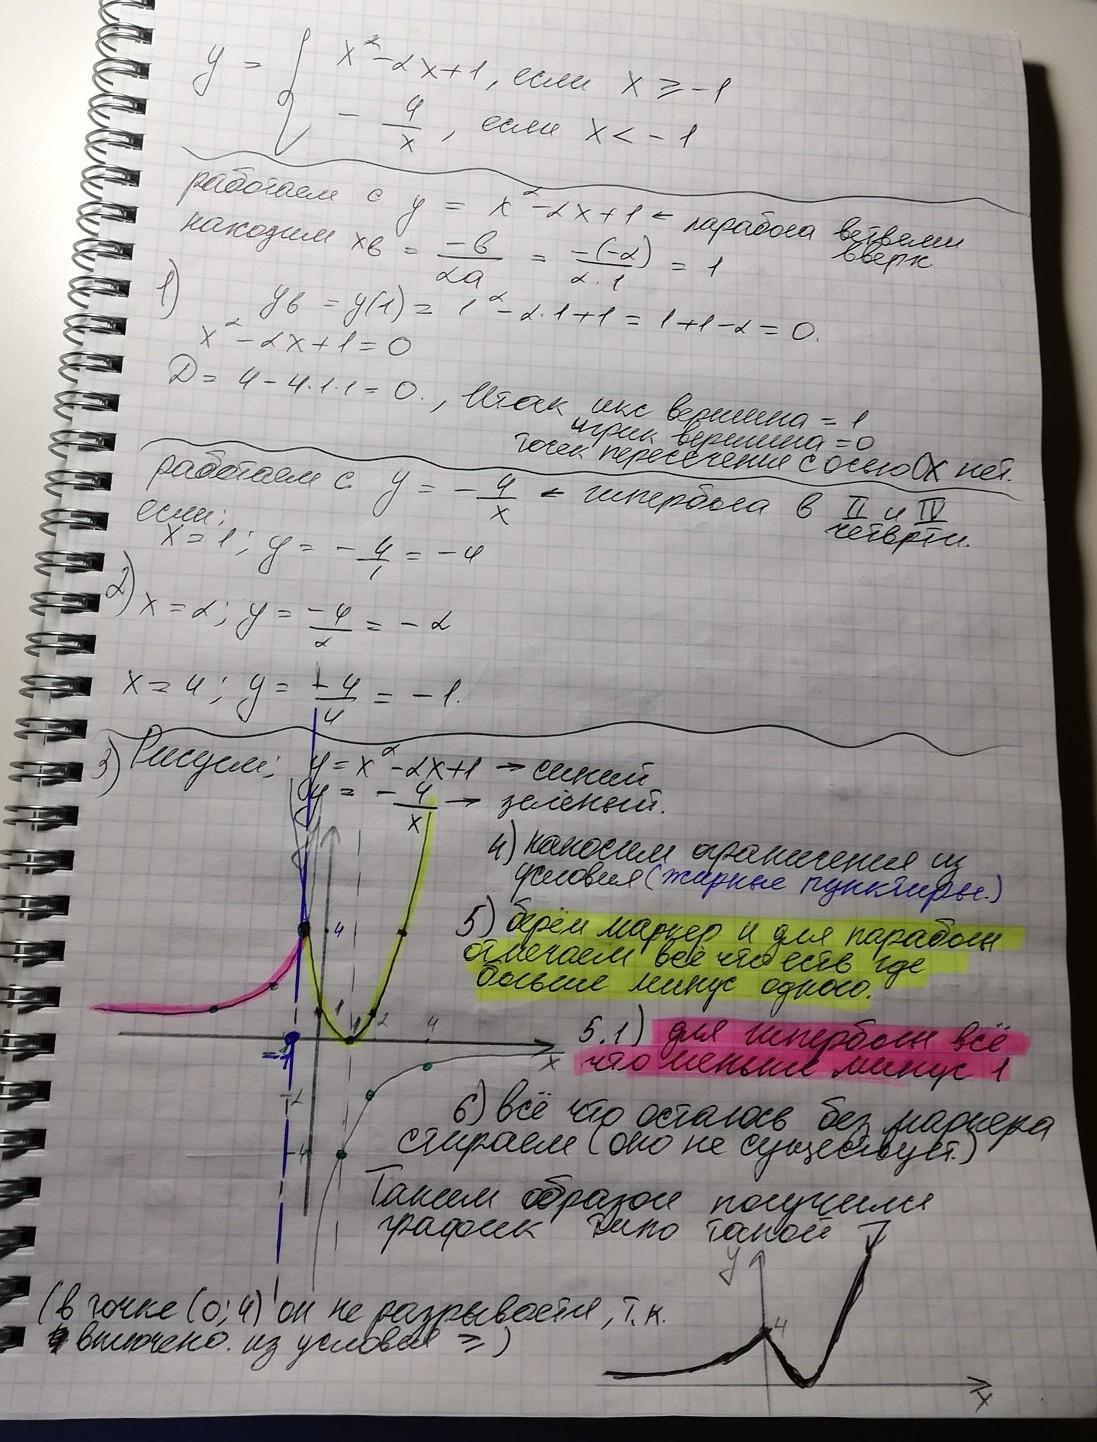 y = { x² - 2x + 1, если x ≥ -1
- 4/x, если x < -1
работаем с y = x² - 2x + 1 ← парабола ветвями вверх
находим xв = -в/2a = -(-2)/2·1 = 1
1) yв = y(1) = 1² - 2·1 + 1 = 1 + 1 - 2 = 0.
x² - 2x + 1 = 0
D = 4 - 4·1·1 = 0., Итак икс вершина = 1
игрик вершина = 0
точек пересечение с осью OX нет.
работаем с y = - 4/x ← гипербола в II и IV четврти.
если:
x = 1; y = - 4/1 = -4
2) x = 2; y = -4/2 = -2
x = 4; y = -4/4 = -1.
3) Рисуем; y = x² - 2x + 1 → синий
y = - 4/x → зелёный.
4) наносим ограничения из
условия (жирные пунктиры.)
5) берём маркер и для параболы
отмечаем всё что есть где
больше минус одного.
5.1) для гиперболы всё
что меньше минус 1
6) всё что осталось без маркера
стираем (оно не существует.)
Таким образом получили
график типо такой
4
1
1
2
4
x
-1
-2
-4
(в точке (0; 4) он не разрывается, т.к.
включено. из условия ≥)
y
4
x